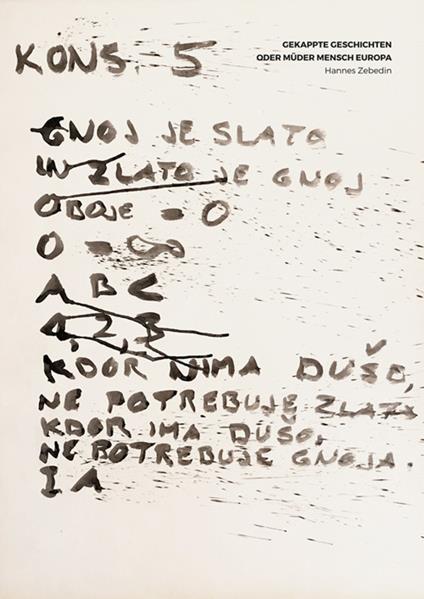 GEKAPPTE GESCHICHTEN
ODER MÜDER MENSCH EUROPA
Hannes Zebedin
KONS. 5
GNOJ JE SLATO
IN ZLATO JE GNOJ
OBOJE = 0
0 = ∞
A B C
1, 2, 3
KDOR NIMA DUŠO,
NE POTREBUJE ZLATA
KDOR IMA DUŠO,
NE POTREBUJE GNOJA.
I A